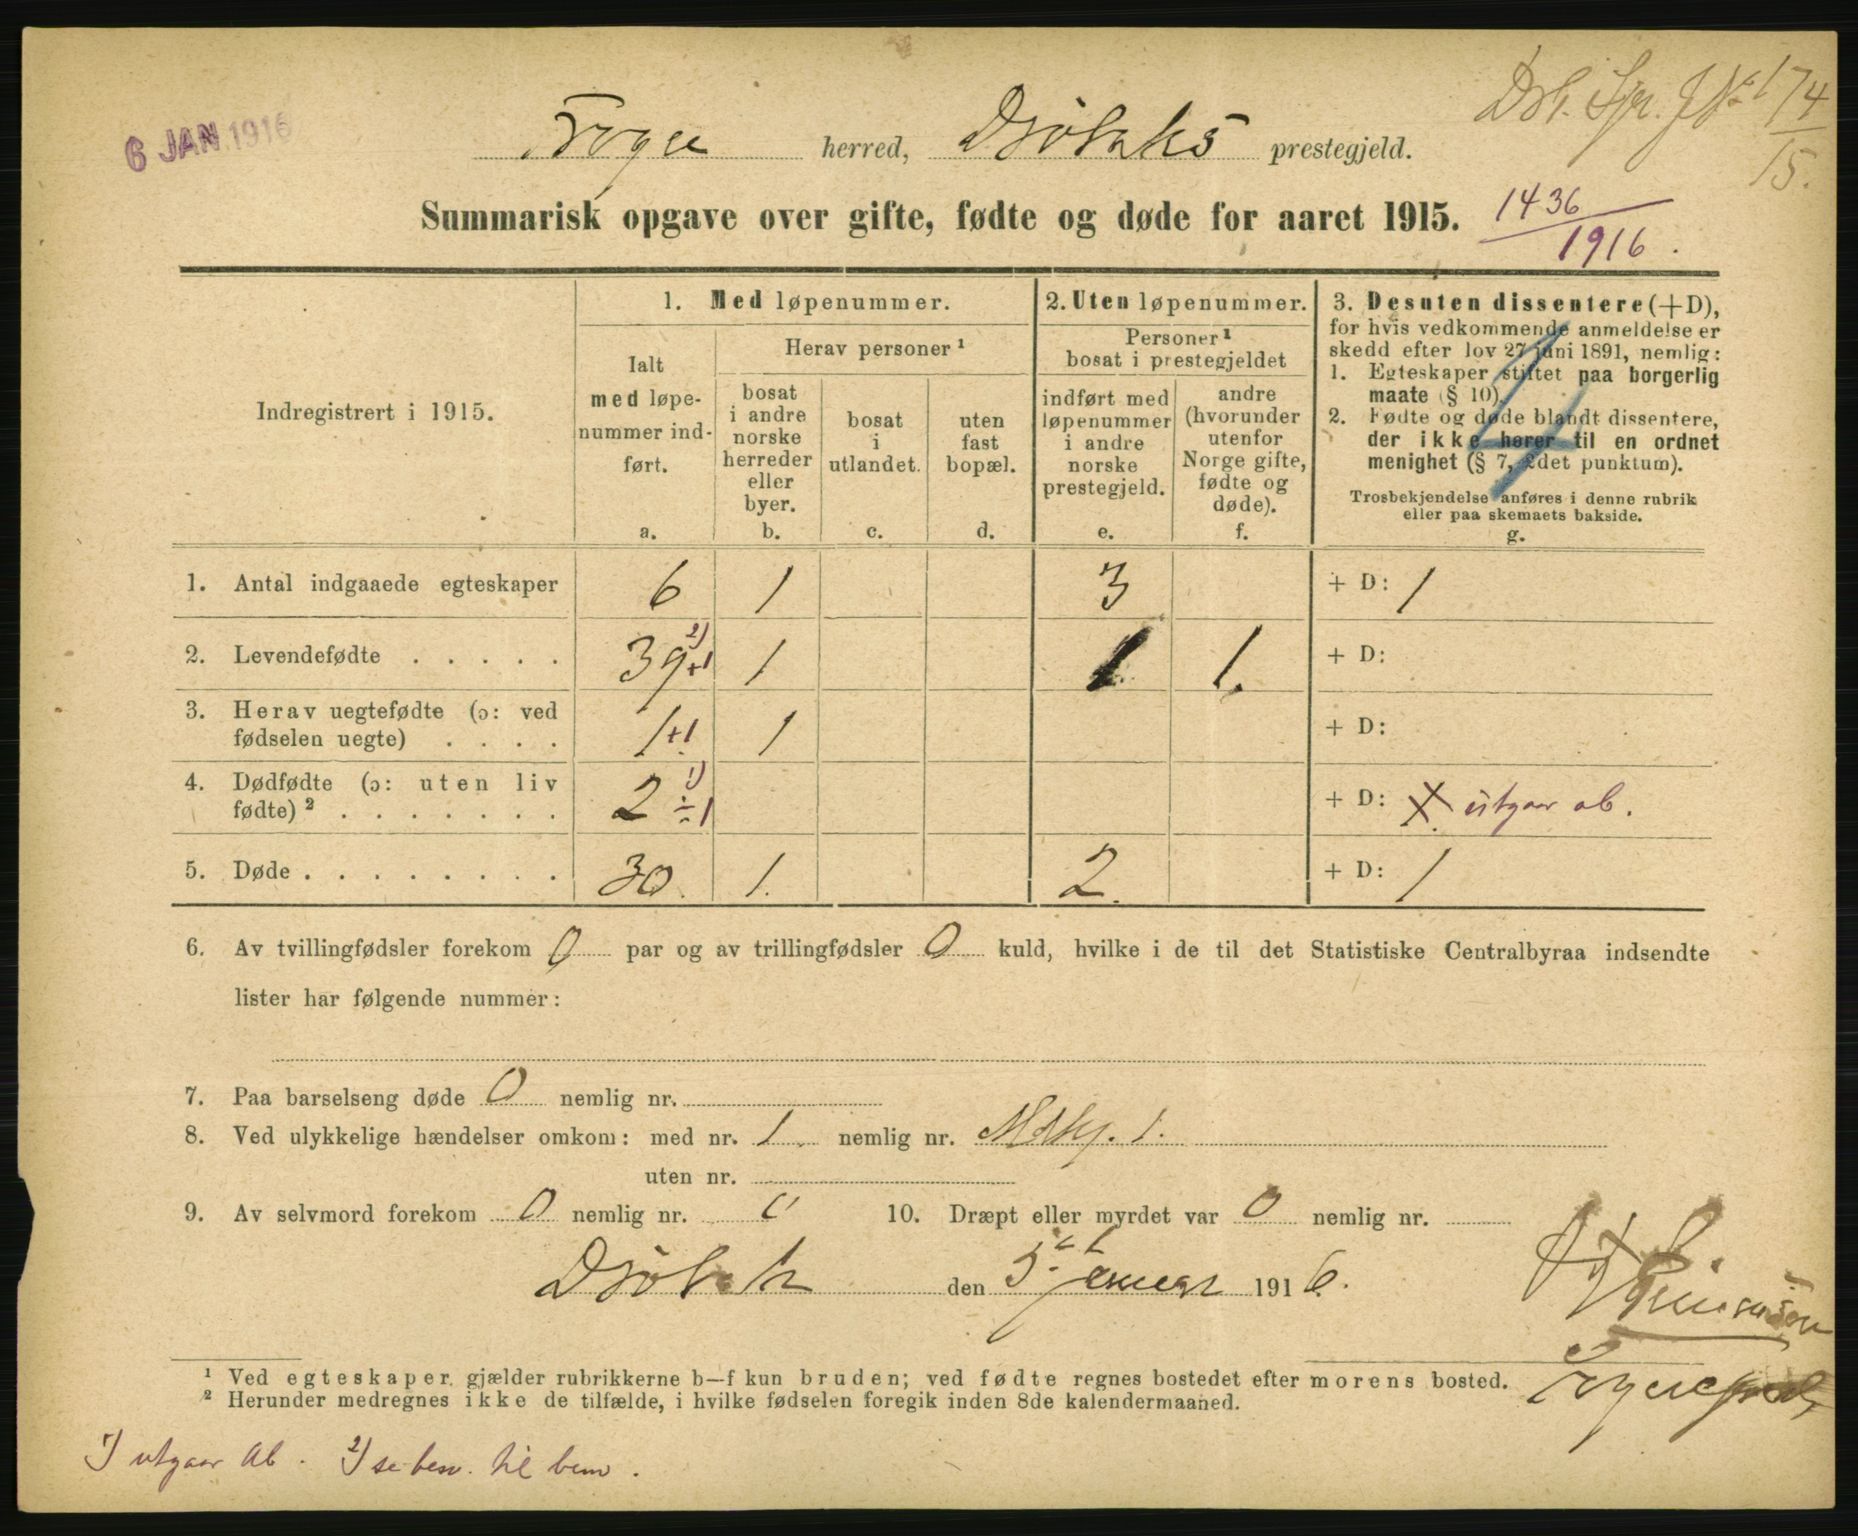 6 JAN 1916
Drb. Spr. J No 174/15.
Frogn herred, Drøbaks prestegjeld.
Summarisk opgave over gifte, fødte og døde for aaret 1915.
1436/1916.
Indregistrert i 1915.
1. Med løpenummer.
2. Uten løpenummer.
3. Desuten dissentere (+D),
for hvis vedkommende anmeldelse er
skedd efter lov 27 juni 1891, nemlig:
1. Egteskaper stiftet paa borgerlig
maate (§ 10).
2. Fødte og døde blandt dissentere,
der ikke hører til en ordnet
menighet (§ 7, 2det punktum).
Trosbekjendelse anføres i denne rubrik
eller paa skemaets bakside.
g.
Ialt
med løpe-
nummer ind-
ført.
a.
Herav personer ¹
bosat
i andre
norske
herreder
eller
byer.
b.
bosat
i
utlandet.
c.
uten
fast
bopæl.
d.
Personer ¹
bosat i prestegjeldet
indført med
løpenummer
i andre
norske
prestegjeld.
e.
andre
(hvorunder
utenfor
Norge gifte,
fødte og
døde).
f.
1. Antal indgaaede egteskaper 6 1 3 + D: 1
2. Levendefødte . . . . . 39 +1 2) 1 1. 1. + D:
3. Herav uegtefødte (ɔ: ved
fødselen uegte) . . . . 1 +1. 1 + D:
4. Dødfødte (ɔ: uten liv
fødte) ² . . . . . . . 2 ÷1 1) + D: X utgaar ab.
5. Døde . . . . . . . . 30. 1. 2. + D: 1
6. Av tvillingfødsler forekom 0 par og av trillingfødsler 0 kuld, hvilke i de til det Statistiske Centralbyraa indsendte
lister har følgende nummer:
7. Paa barselseng døde 0 nemlig nr.
8. Ved ulykkelige hændelser omkom: med nr. 1. nemlig nr. Mdkj. 1.
uten nr.
9. Av selvmord forekom 0 nemlig nr. 0 10. Dræpt eller myrdet var 0 nemlig nr.
Drøbak den 5. januar 1916.
Sogneprest
¹ Ved egteskaper gjælder rubrikkerne b—f kun bruden; ved fødte regnes bostedet efter morens bosted.
² Herunder medregnes ikke de tilfælde, i hvilke fødselen foregik inden 8de kalendermaaned.
1) utgaar ab. 2) se ben. til bem.